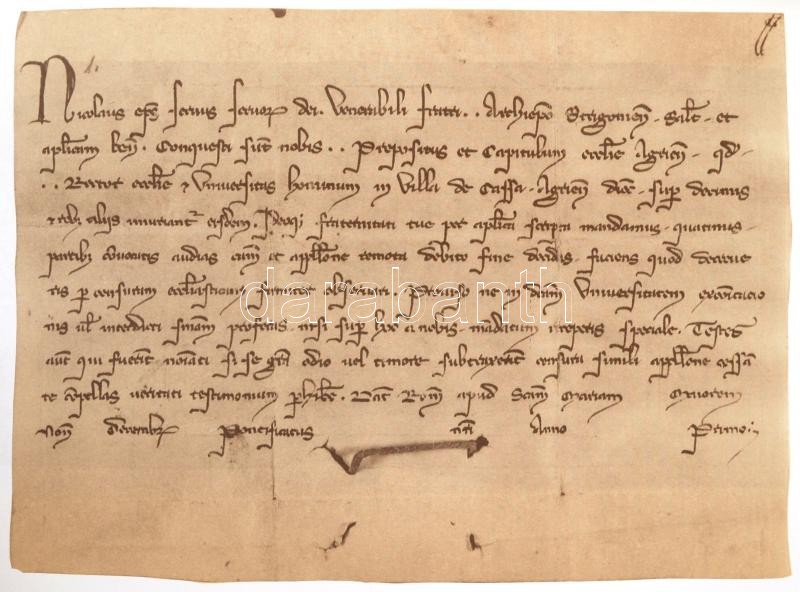 Nicolaus ep̄s servus servoꝝ dei. Venerabili fratri . . Archiep̄o Strigonień. Salt̄. et
aplicam beń. Conquesti sūt nobis . . Prepositus et Capitulum ecclīe Agrień. qd̄.
. . Rector ecclīe et Universitas hominum in Villa de Cassa. Agrień dioc̄. sup̄ decimis
et reb; alijs iniuriant̄ eisdem. Ideoq; fraternitati tue per aplica scripta mandamus. quatinus
partib; convocatis audias cām et appllōne remota debito fine decidas. faciens quod decreve
ris p censuram ecclīasticam firmiter observari. Proviso ne in dcām Universitatem excōicatio
nis ul̄ interdicti snīam proferas. nisi sup̄ hoc a nobis. mādatum receperis speciale. Testes
aut̄ qui fuerīt noīati si se grā odio vel timore subtraxerīt censura simili appllōne cessan
te cōpellas veritati testimonium phibē̄. Dat̄ Rom̄ apud Scām Mariam Maiorem
Noń Decembꝝ Pontificatus nrī Anno Primo.
darabanth